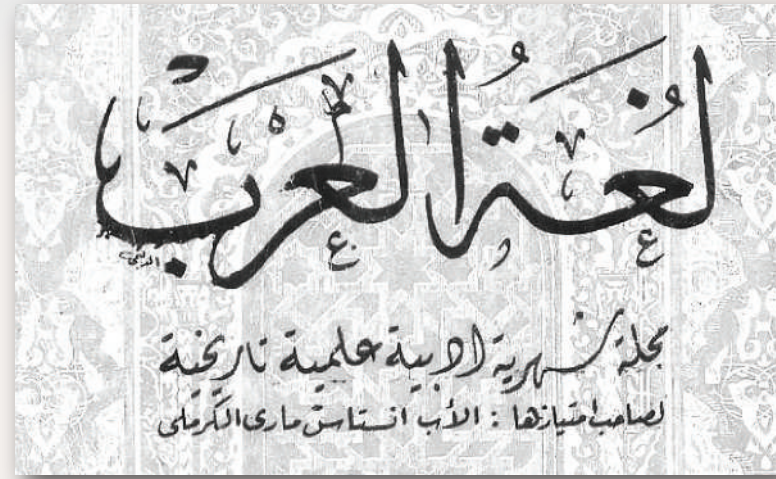 لُغَةُ العَرَبْ
مجلة شهرية ادبية علمية تاريخية
لصاحب امتيازها : الأب انستاس مارى الكرملى